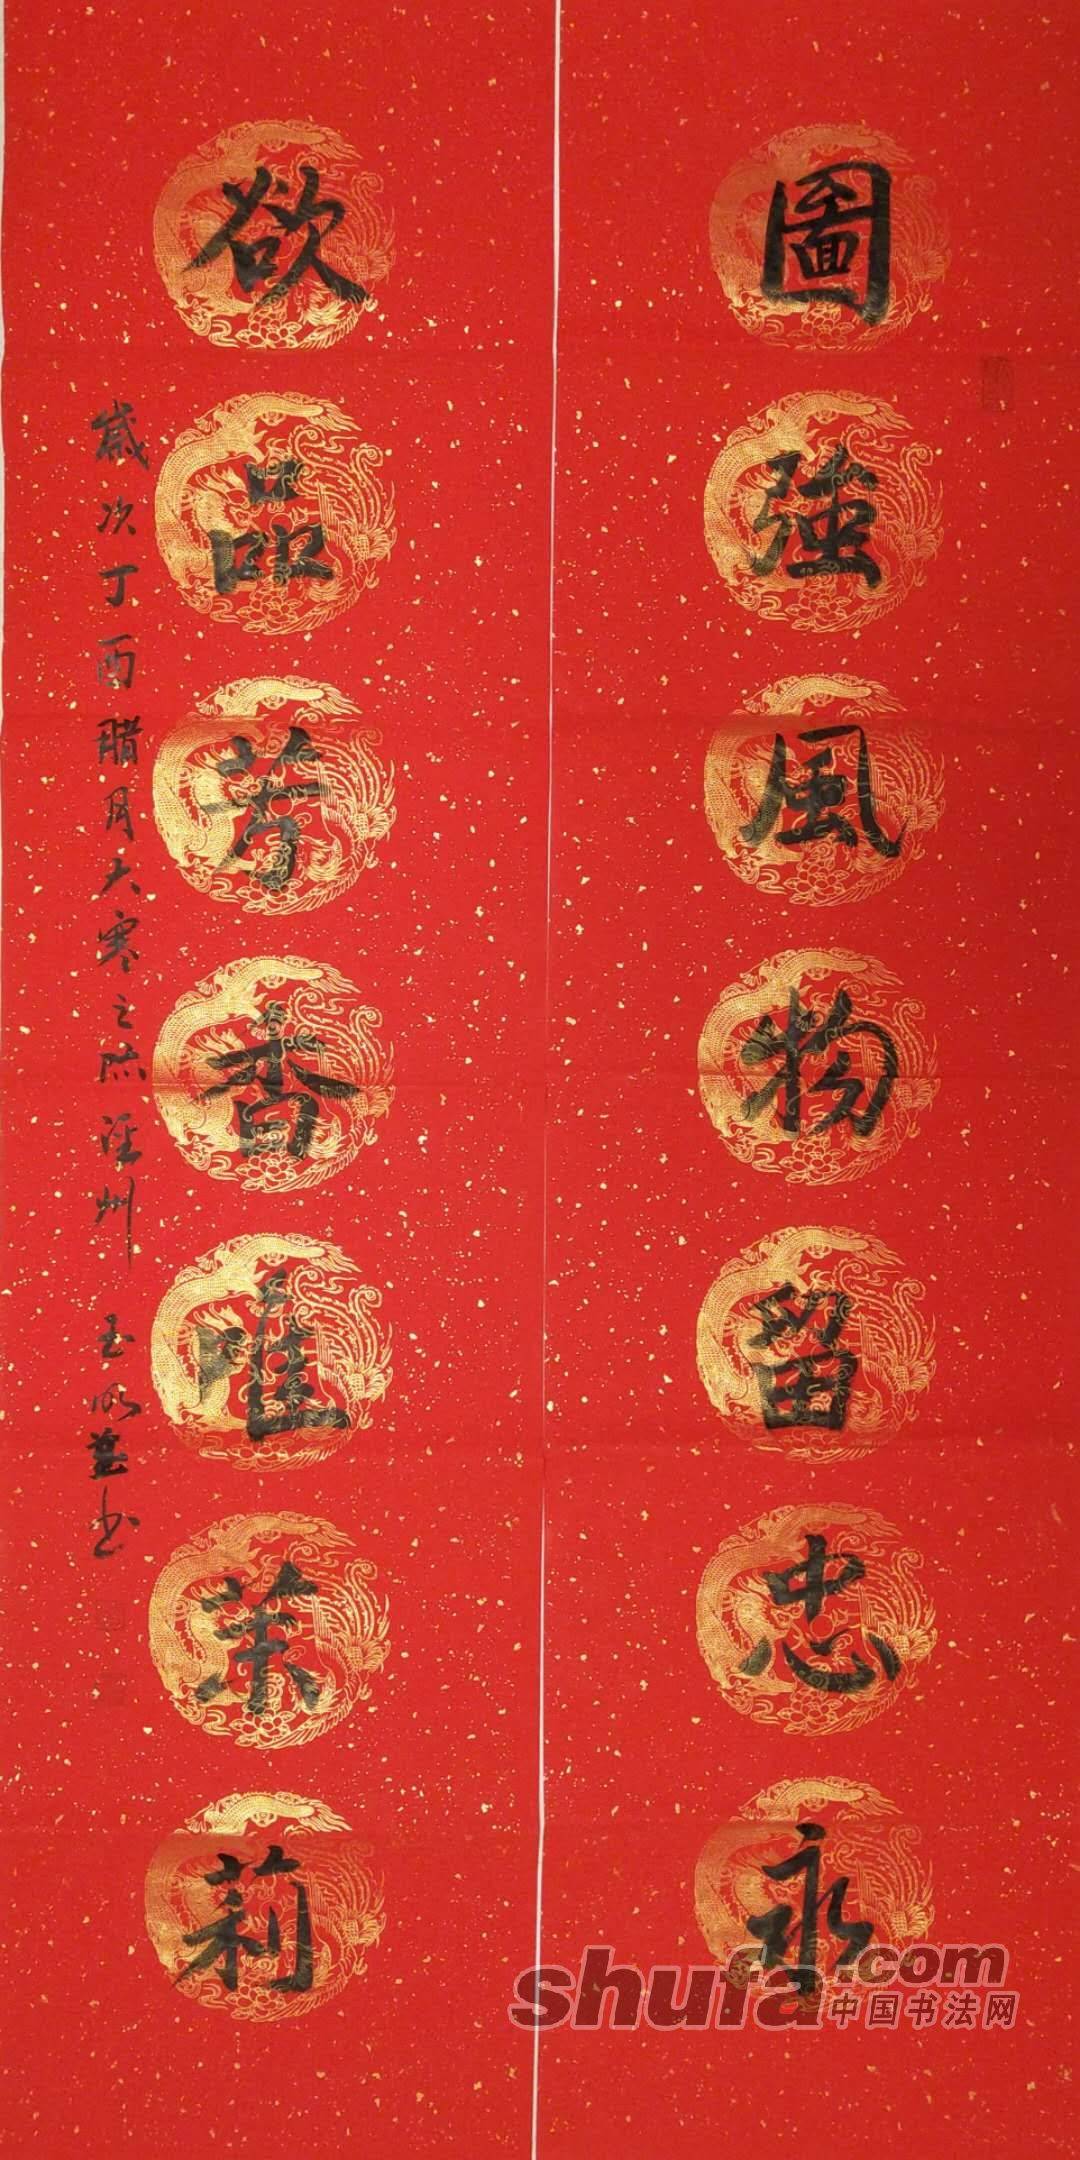 圖強風物留忠永
欲品芳香唯茉莉
歲次丁酉腊月大寒之际 州 玉 並书
shufa.com
中国书法网